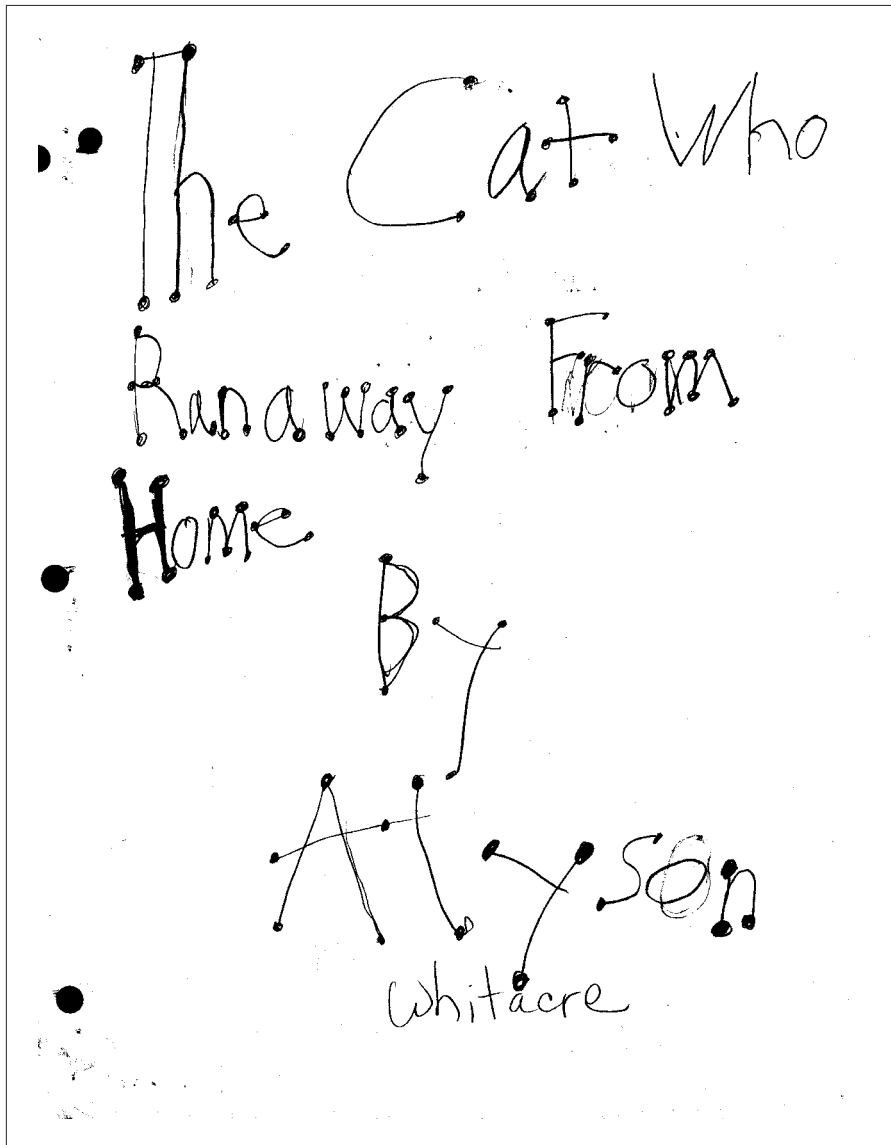 The Cat Who
Runaway From
Home
By
Alyson
Whitacre